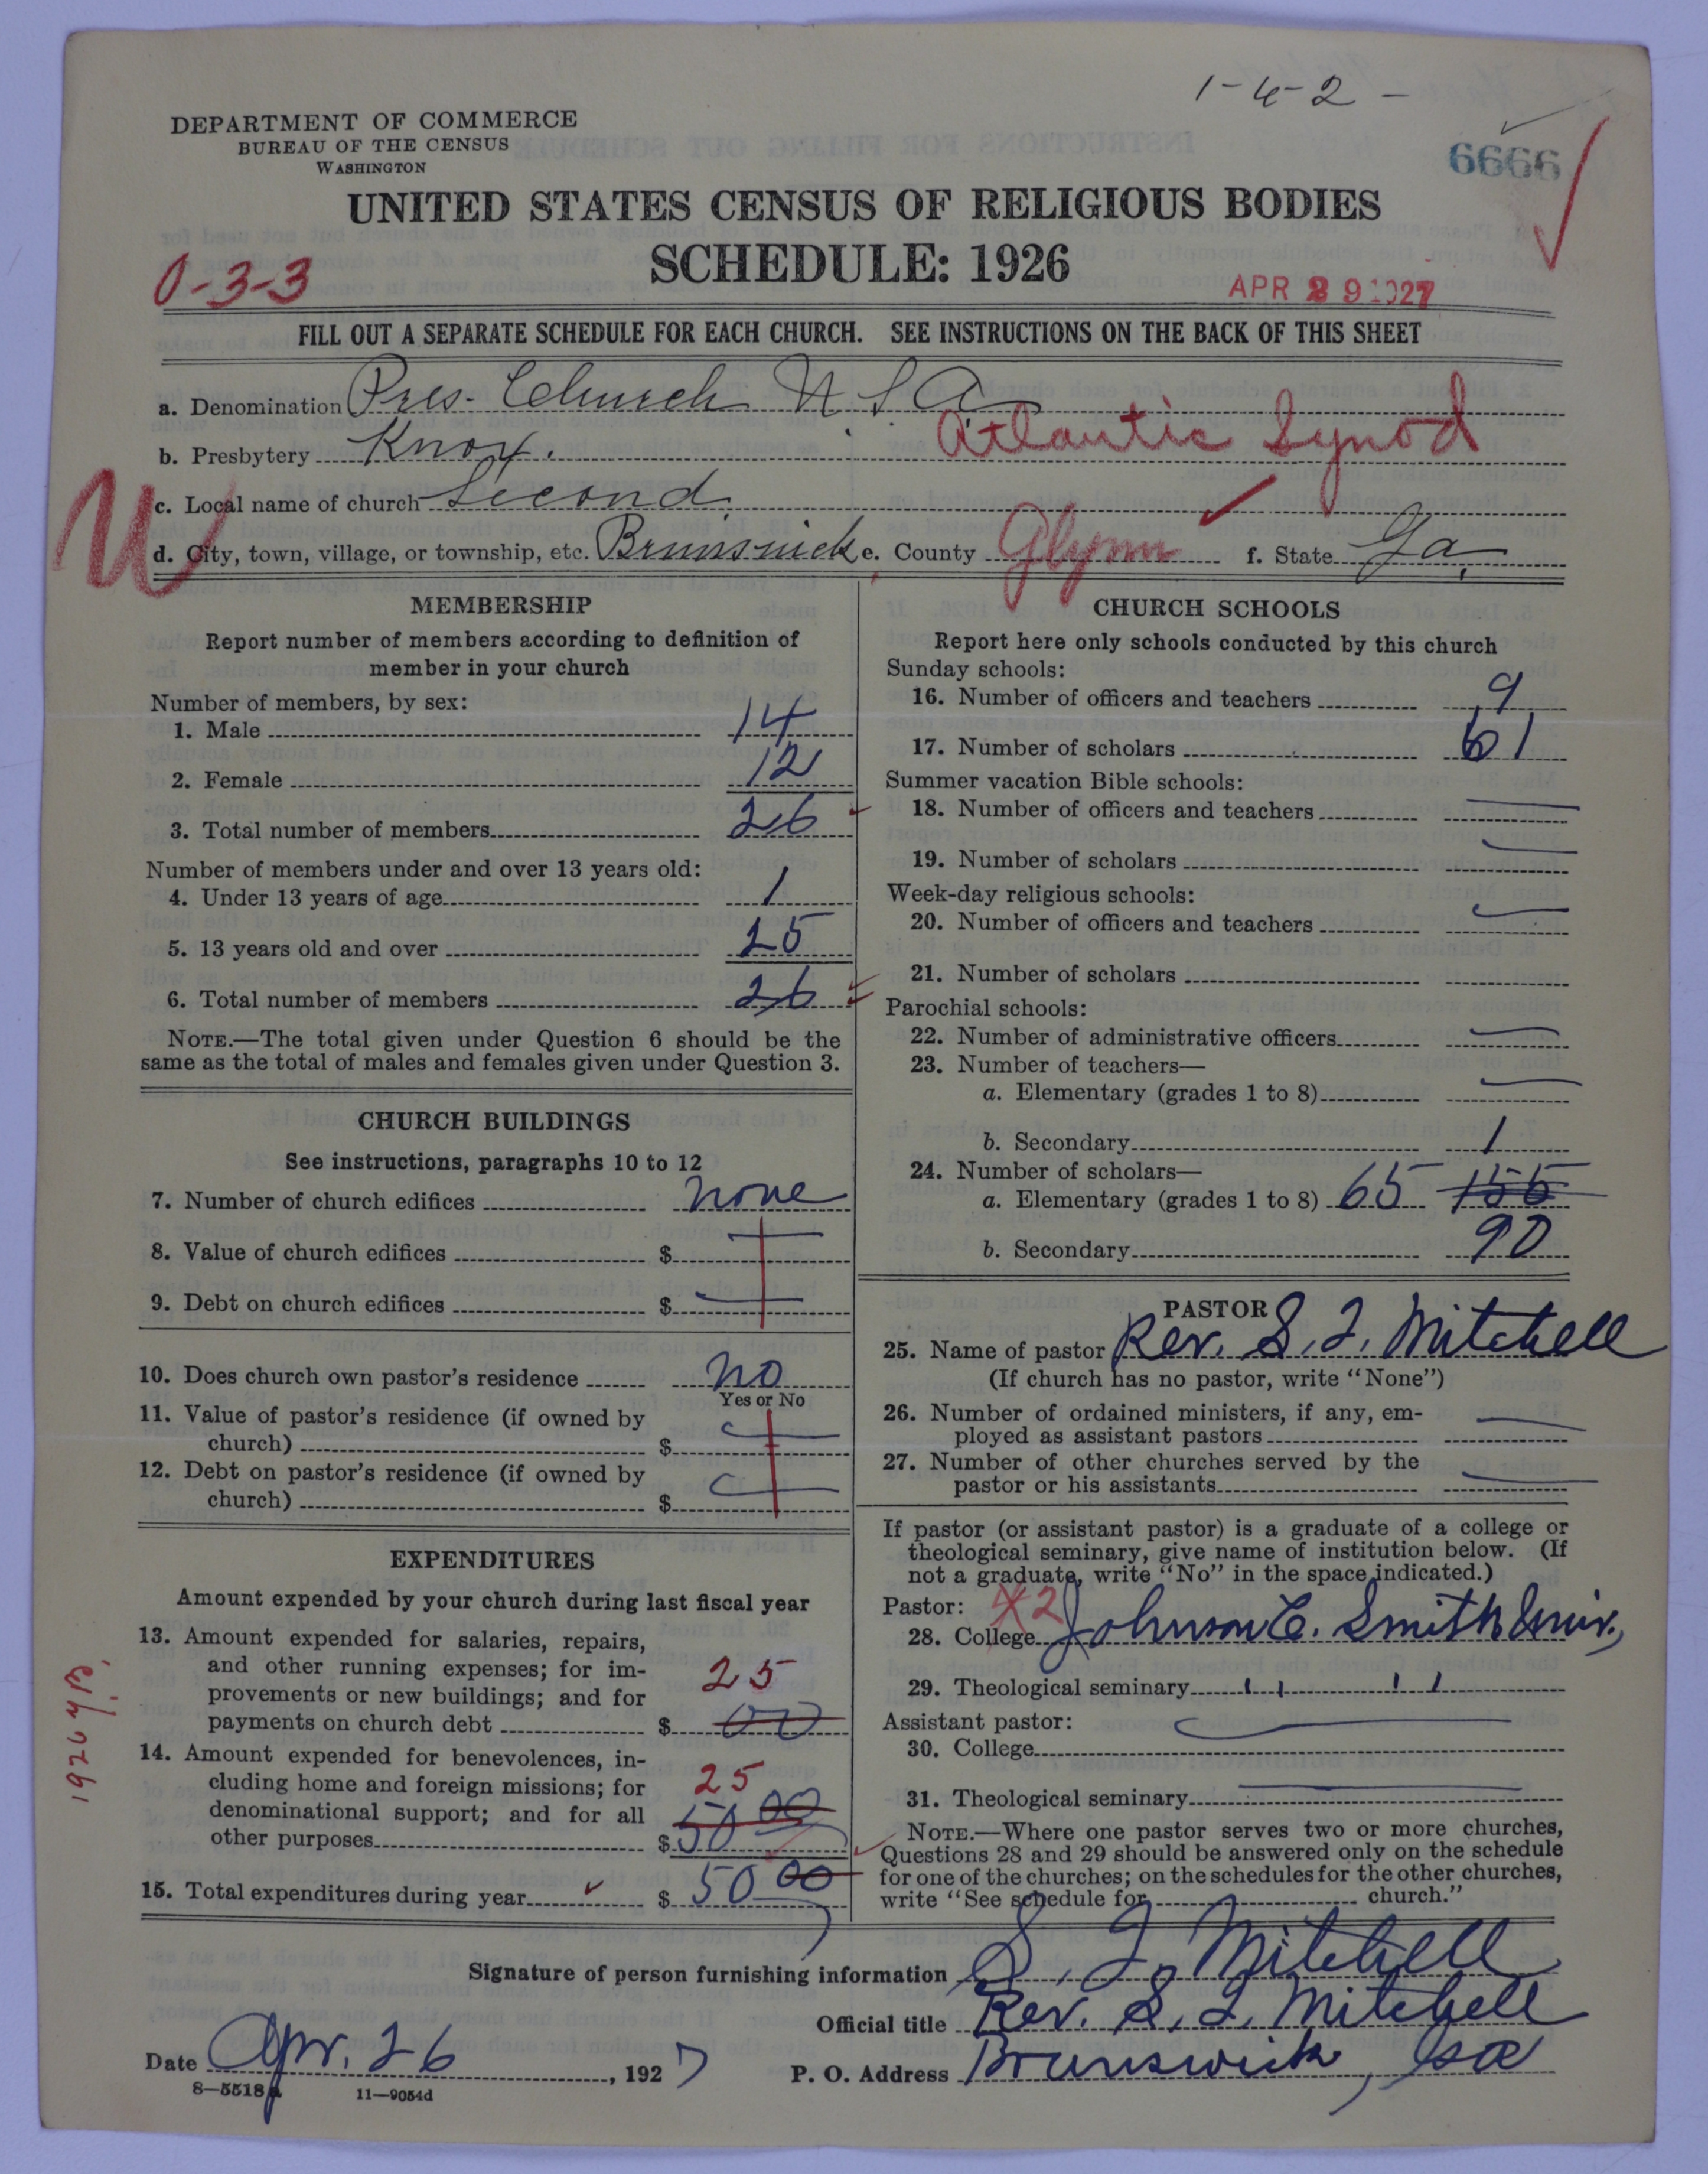 1-4-2-
DEPARTMENT OF COMMERCE
BUREAU OF THE CENSUS
WASHINGTON
6666
UNITED STATES CENSUS OF RELIGIOUS BODIES
SCHEDULE: 1926
0-3-3
APR 29 1927
FILL OUT A SEPARATE SCHEDULE FOR EACH CHURCH. SEE INSTRUCTIONS ON THE BACK OF THIS SHEET
a. Denomination Pres. Church U S A
b. Presbytery Knox. Atlantic Synod
c. Local name of church Second
d. City, town, village, or township, etc. Brunswick e. County Glynn f. State Ga.
MEMBERSHIP
Report number of members according to definition of
member in your church
Number of members, by sex:
1. Male 14
2. Female 12
3. Total number of members 26
Number of members under and over 13 years old:
4. Under 13 years of age 1
5. 13 years old and over 25
6. Total number of members 26
NOTE.—The total given under Question 6 should be the
same as the total of males and females given under Question 3.
CHURCH BUILDINGS
See instructions, paragraphs 10 to 12
7. Number of church edifices none
8. Value of church edifices $ —
9. Debt on church edifices $ —
10. Does church own pastor's residence no
Yes or No
11. Value of pastor's residence (if owned by
church) $ —
12. Debt on pastor's residence (if owned by
church) $ —
EXPENDITURES
Amount expended by your church during last fiscal year
13. Amount expended for salaries, repairs,
and other running expenses; for im-
provements or new buildings; and for 25
payments on church debt $ 00
14. Amount expended for benevolences, in-
cluding home and foreign missions; for 25
denominational support; and for all
other purposes $ 50 00
15. Total expenditures during year $ 50 00
1926 yB.
CHURCH SCHOOLS
Report here only schools conducted by this church
Sunday schools:
16. Number of officers and teachers 9
17. Number of scholars 61
Summer vacation Bible schools:
18. Number of officers and teachers —
19. Number of scholars —
Week-day religious schools:
20. Number of officers and teachers —
21. Number of scholars
Parochial schools:
22. Number of administrative officers —
23. Number of teachers—
a. Elementary (grades 1 to 8) —
b. Secondary 1
24. Number of scholars—
a. Elementary (grades 1 to 8) 65 155
b. Secondary 90
PASTOR
25. Name of pastor Rev. S. J. Mitchell
(If church has no pastor, write "None")
26. Number of ordained ministers, if any, em-
ployed as assistant pastors —
27. Number of other churches served by the
pastor or his assistants —
If pastor (or assistant pastor) is a graduate of a college or
theological seminary, give name of institution below. (If
not a graduate, write "No" in the space indicated.)
Pastor: 2
28. College Johnson C. Smith Univ.,
29. Theological seminary " "
Assistant pastor: —
30. College
31. Theological seminary —
NOTE.—Where one pastor serves two or more churches,
Questions 28 and 29 should be answered only on the schedule
for one of the churches; on the schedules for the other churches,
write "See schedule for church."
Signature of person furnishing information S. J. Mitchell
Official title Rev. S. J. Mitchell
Date Apr. 26, 1927 P. O. Address Brunswick, Ga
8—5518a 11—9054d